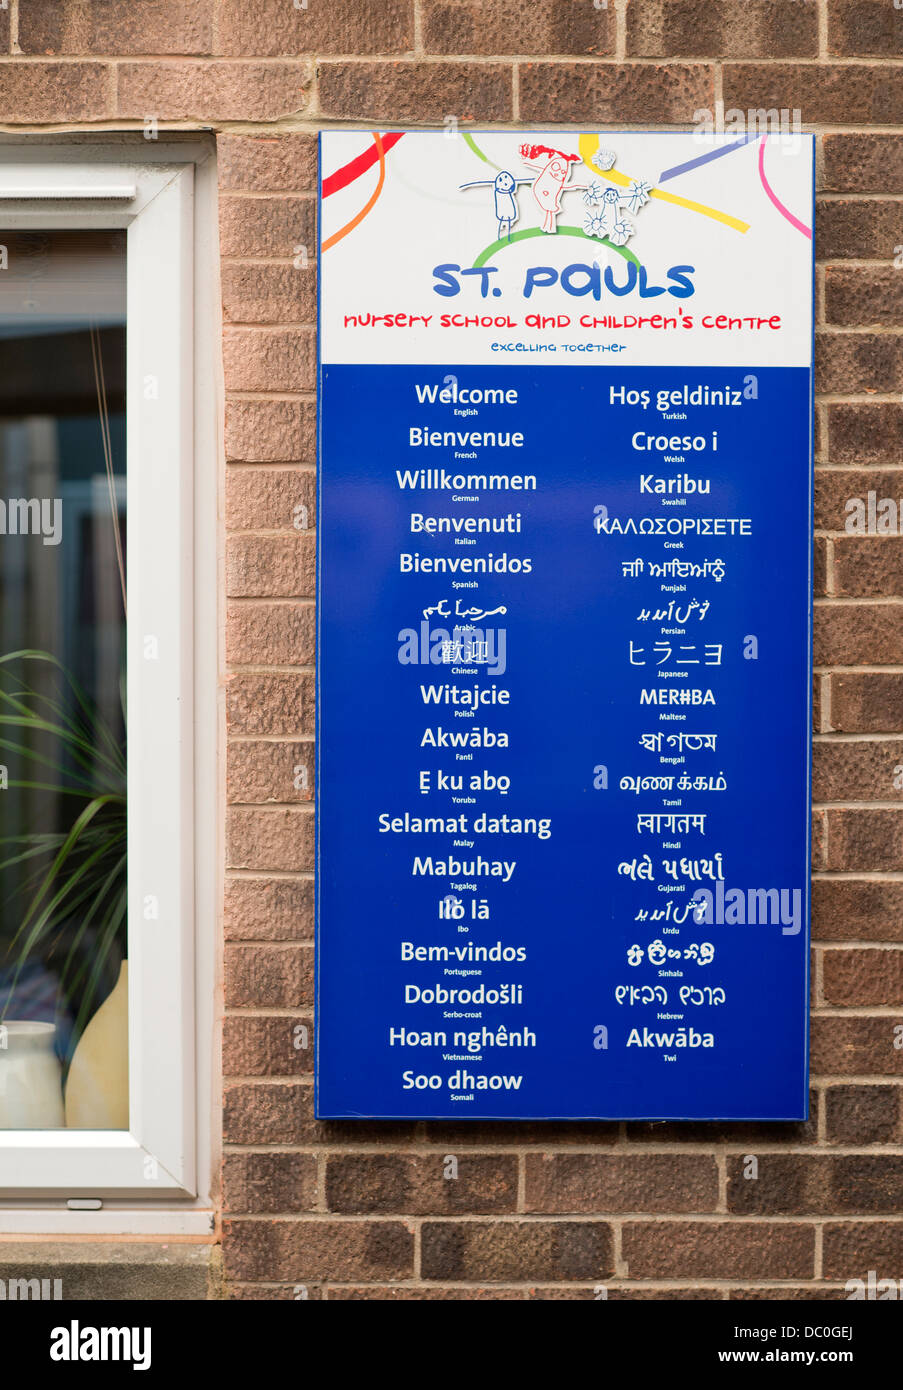 ST. PAULS
NURSERY SCHOOL AND CHILDREN'S CENTRE
EXCELLING TOGETHER
Welcome
English
Bienvenue
French
Willkommen
German
Benvenuti
Italian
Bienvenidos
Spanish
مرحبا بكم
Arabic
歡迎
Chinese
Witajcie
Polish
Akwāba
Fanti
Ẹ ku abọ
Yoruba
Selamat datang
Malay
Mabuhay
Tagalog
Ilŏ lā
Ibo
Bem-vindos
Portuguese
Dobrodošli
Serbo-croat
Hoan nghênh
Vietnamese
Soo dhaow
Somali
Hoş geldiniz
Turkish
Croeso i
Welsh
Karibu
Swahili
ΚΑΛΩΣΟΡΙΣΕΤΕ
Greek
ਜੀ ਆਇਆਂਨੂੰ
Punjabi
خوش آمدید
Persian
ヒラニヨ
Japanese
MERĦBA
Maltese
স্বাগতম
Bengali
வணக்கம்
Tamil
स्वागतम्
Hindi
ભલે પધાર્યા
Gujarati
خوش آمدید
Urdu
Sinhala
ברוכים הבאים
Hebrew
Akwāba
Twi
alamy
Image ID: DC0GEJ
www.alamy.com